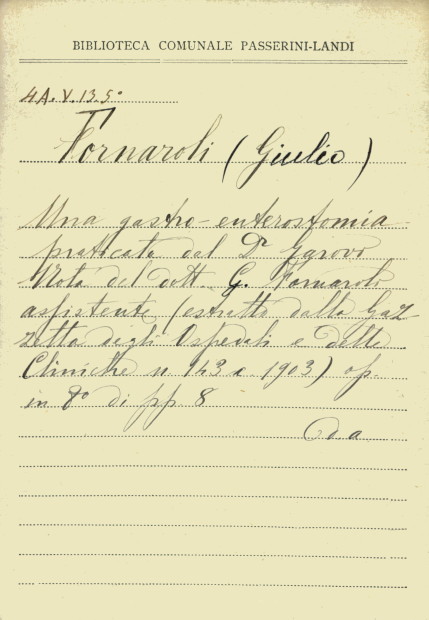 BIBLIOTECA COMUNALE PASSERINI-LANDI
4A. V. 13. 5°
Fornaroli (Giulio)
Una gastro-enterostomia
praticata dal Dr
Nota del dott. G. Fornaroli
assistente (estratto dalla Gaz
zetta degli Ospedali e delle
Cliniche n 143 a 1903) op.
in 8° di pp 8